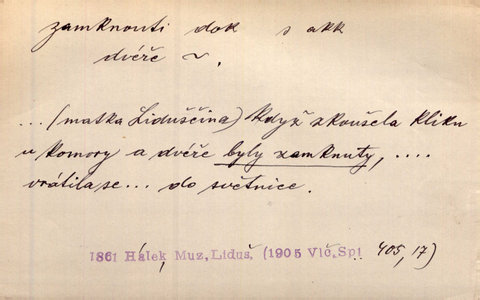 zamknouti dok s akk
dvéře ~.
... (matka Liduščina) když zkoušela kliku
u komory a dvéře byly zamknuty, ....
vrátila se... do světnice.
1861 Hálek, Muz, Liduš. (1905 Vlč. Spi 405, 17)